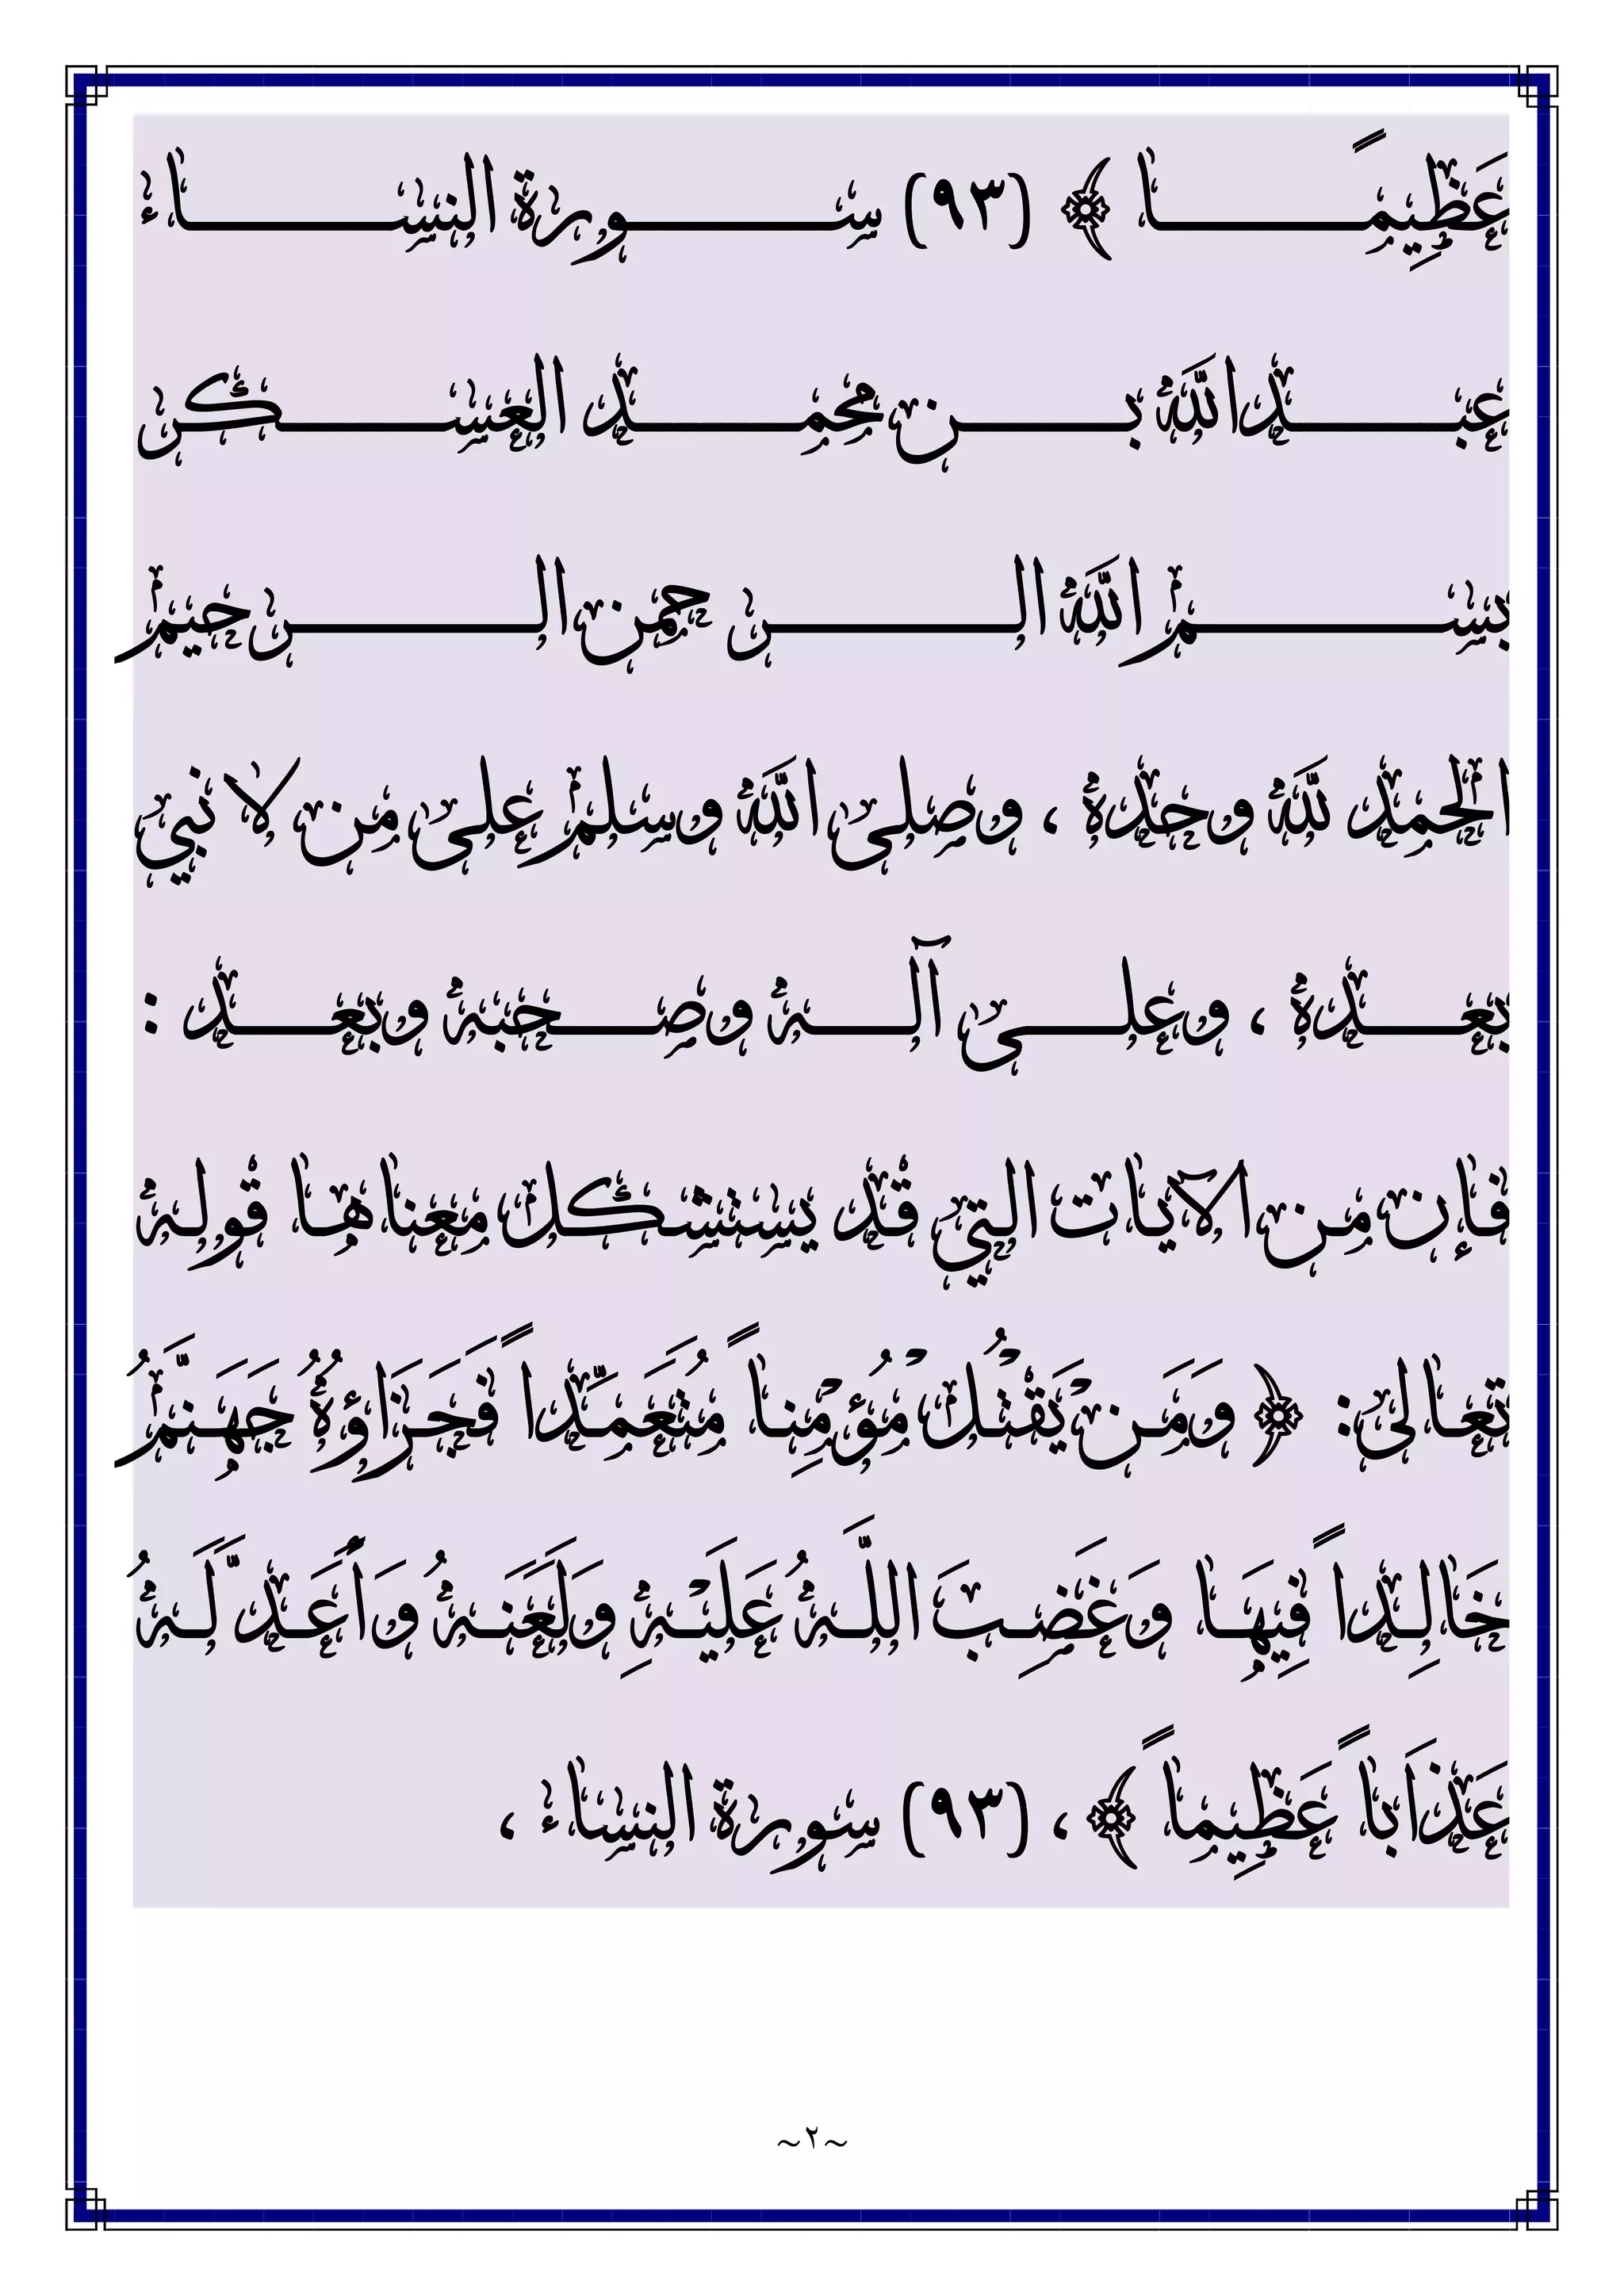 عَظِيمًا ﴾ (٩٣) سورة النساء
عبدالله بن محمد العسكر
بسم الله الرحمن الرحيم
الحمد لله وحده ، وصلى الله وسلم على من لا نبي
بعده ، وعلى آله وصحبه وبعد :
فإن من الآيات التي قد يستشكل معناها قوله
تعالى: ﴿ وَمَن يَقْتُلْ مُؤْمِناً مُّتَعَمِّداً فَجَزَاؤُهُ جَهَنَّمُ
خَالِداً فِيهَا وَغَضِبَ اللَّهُ عَلَيْهِ وَلَعَنَهُ وَأَعَدَّ لَهُ
عَذَاباً عَظِيماً ﴾ ، (٩٣) سورة النساء ،
~٢~